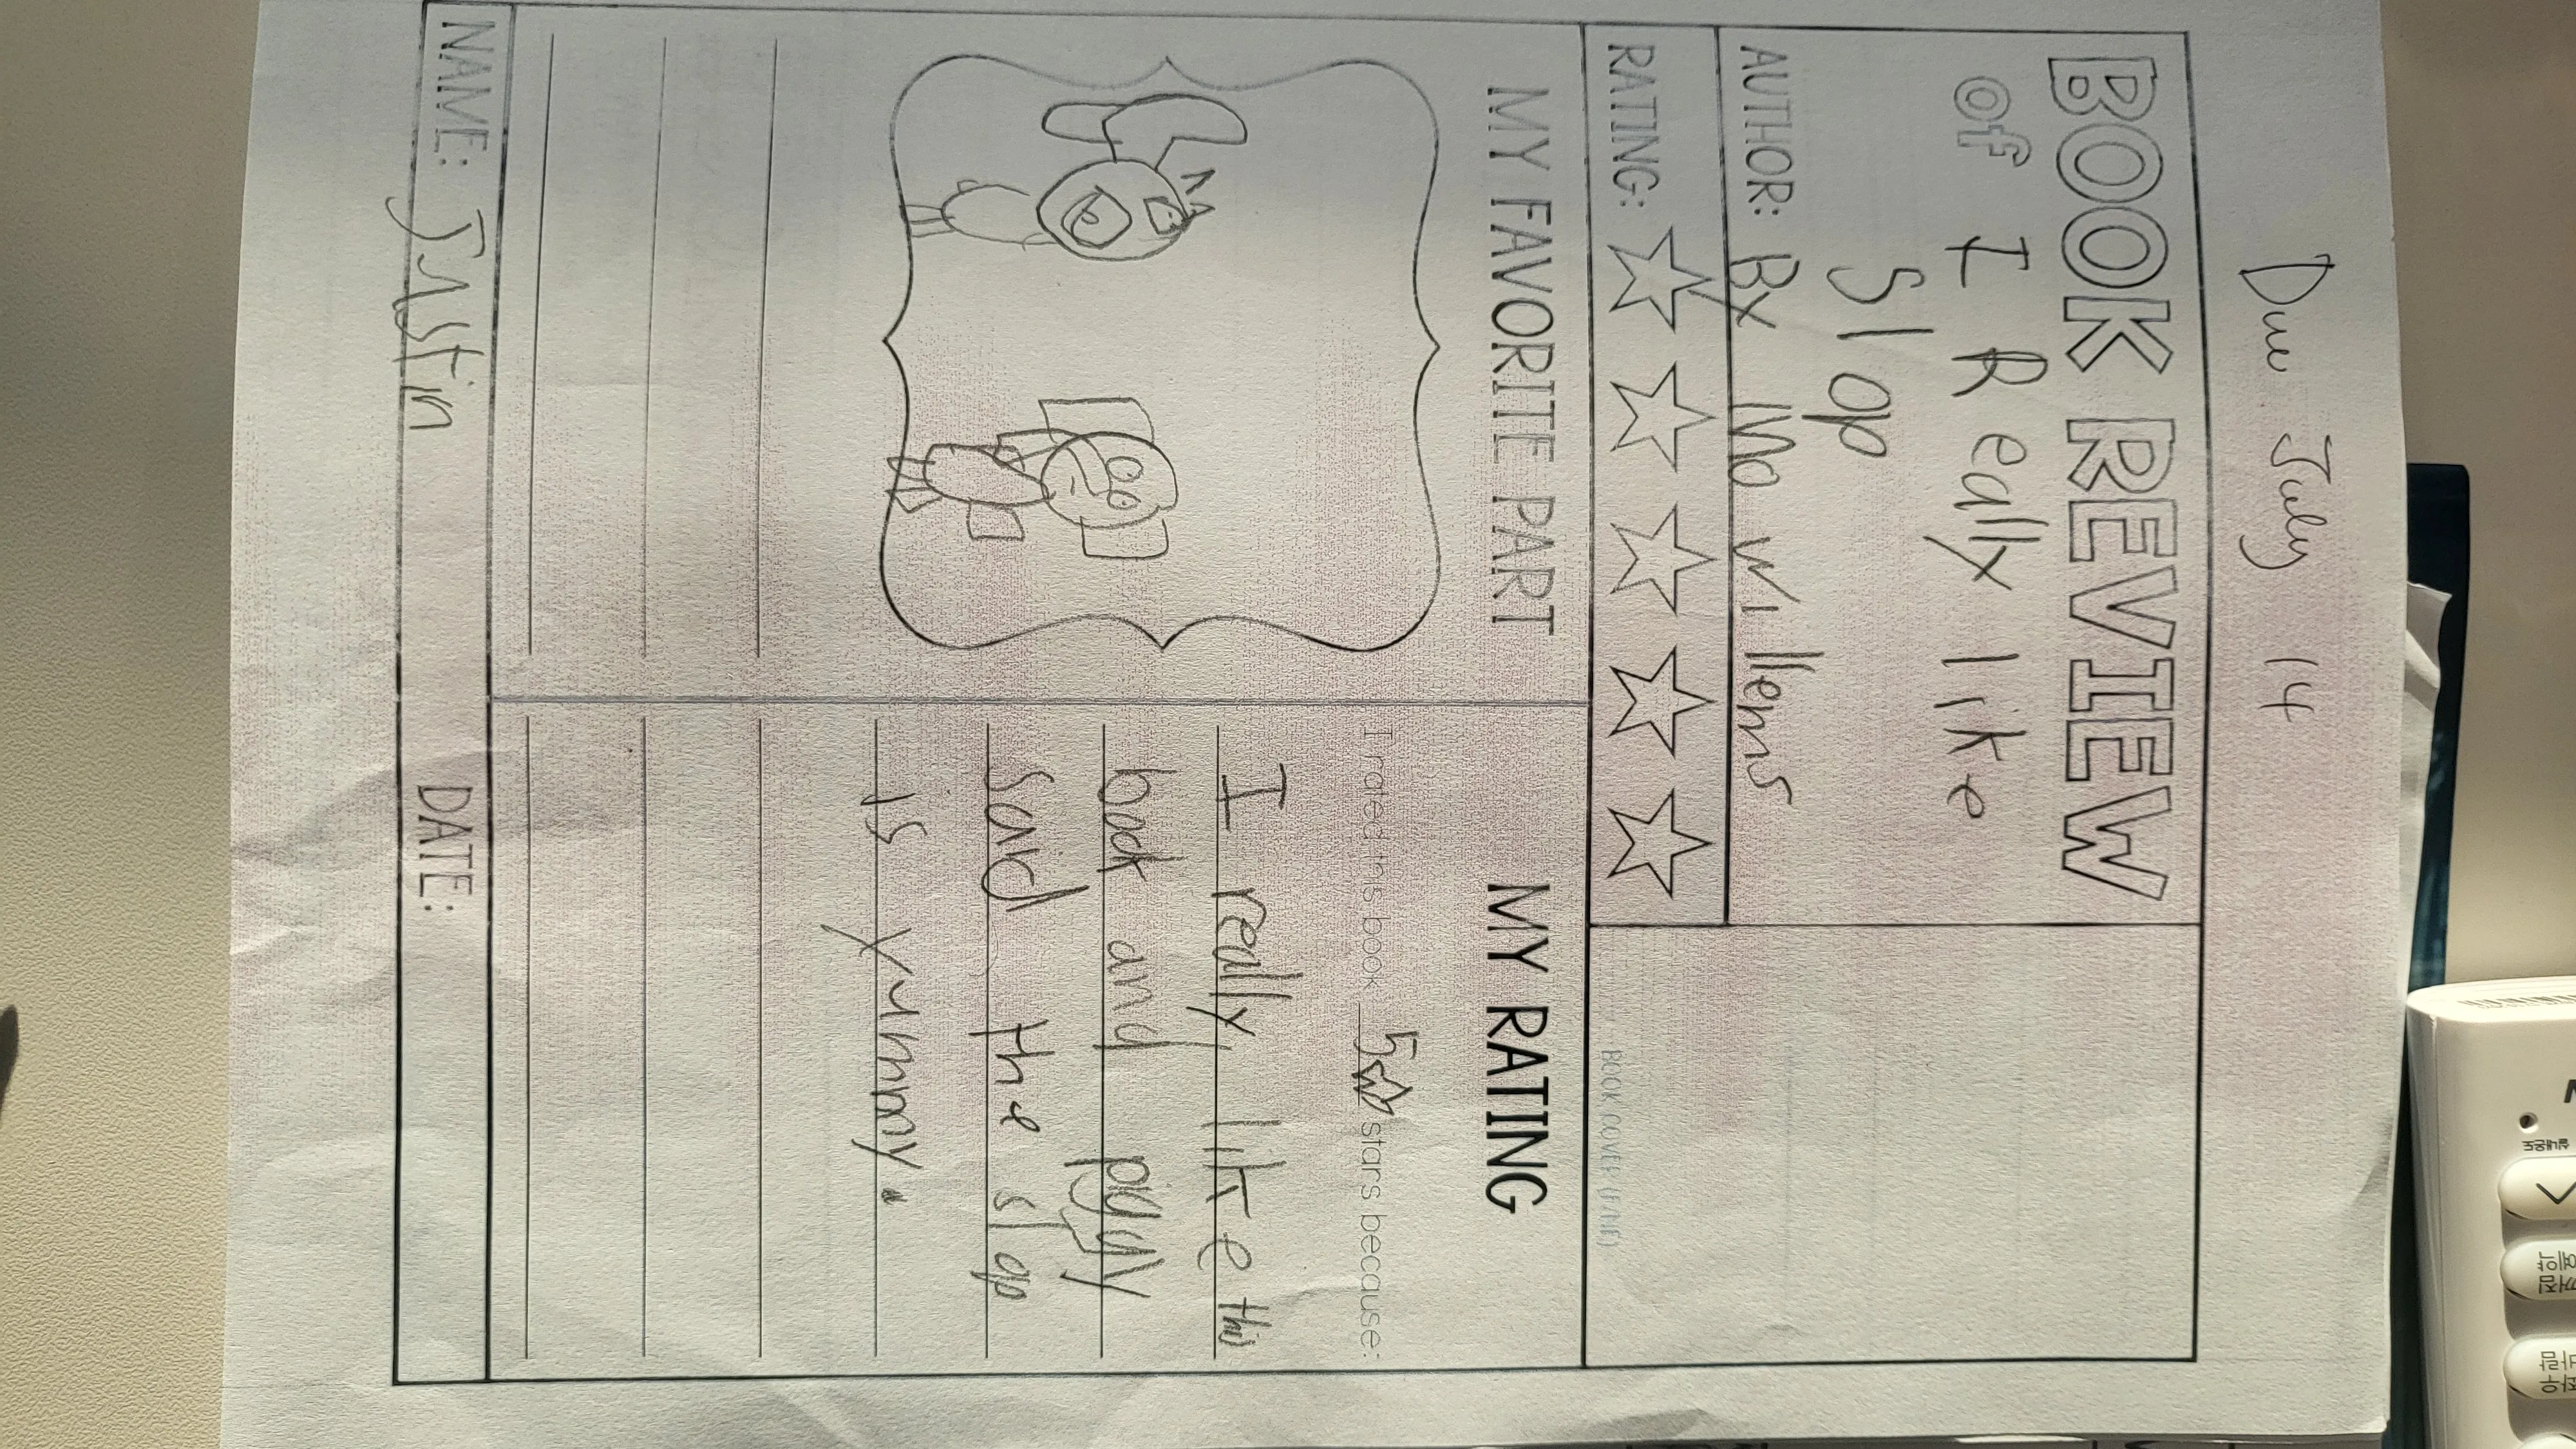 Due July 14
BOOK REVIEW
of I Really like
Slop
AUTHOR: By Mo Willems
RATING:
BOOK COVER (FRONT)
MY FAVORITE PART
MY RATING
I rated this book 5 stars because:
I really like this
book and
said the slop
is yummy.
NAME: Justin
DATE:
실내온도
예약
꺼짐
바람